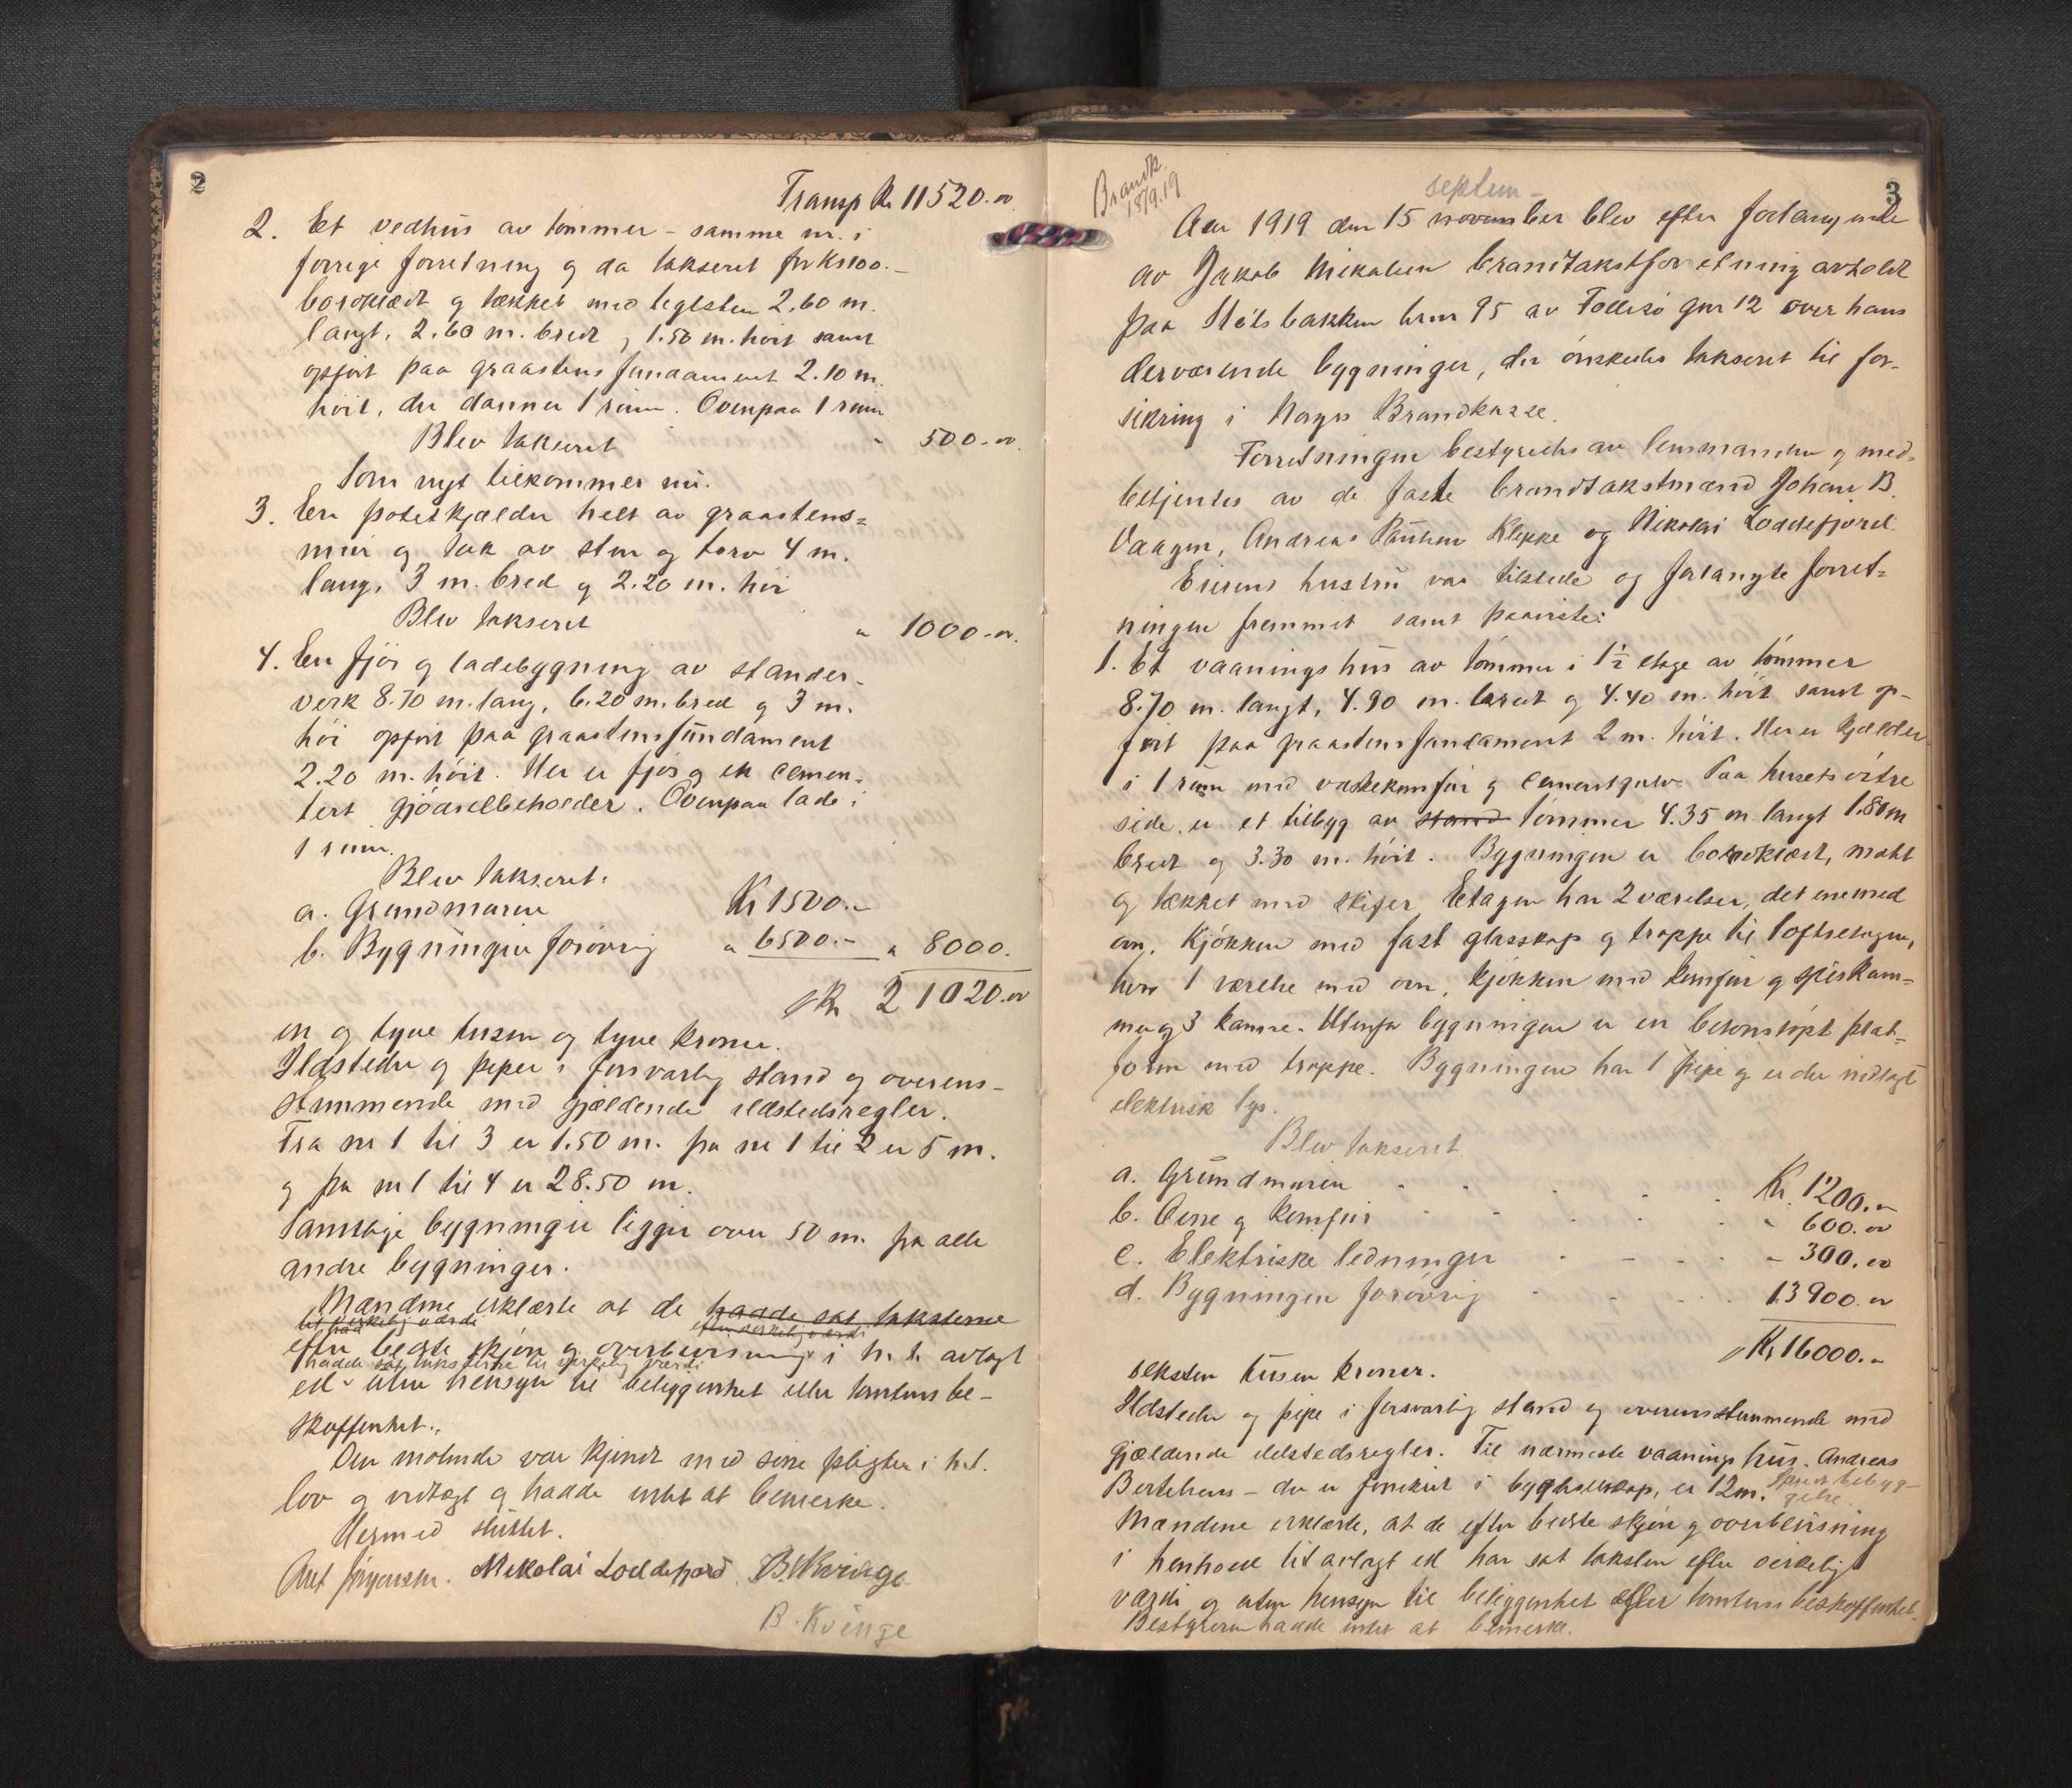 2
Transp Kr 11520.00
2. Et vedhus av tømmer - samme nr. i
forrige forretning og da takseret for Kr 100.-
bordklædt og tækket med teglsten 2.60 m.
langt, 2.60 m. bredt, 1.50 m. høit samt
opført paa graastensfundament 2.10 m.
høit, der danner 1 rum. Ovenpaa 1 rum
Blev takseret " 500.00
Som nyt tilkommer nu:
3. En potetkjælder helt av graastens=
mur og tak av sten og torv 4 m.
lang, 3 m. bred og 2.20 m. høi
Blev takseret " 1000.00
4. En fjøs og ladebygning av stander-
verk 8.70 m. lang, 6.20 m. bred og 3 m.
høi opført paa graastensfundament
2.20 m. høit. Her er fjøs og en cemen-
tert gjødselbeholder. Ovenpaa lade i
1 rum.
Blev takseret:
a. Grundmuren Kr 1500.-
b. Bygningen forøvrig " 6500.- " 8000.
Kr 21020.00
en og tyve tusen og tyve kroner.
Ildsteder og piper i forsvarlig stand og overens-
stemmende med gjældende ildstedsregler.
Fra nr 1 til 3 er 1.50 m. fra nr 1 til 2 er 5 m.
og fra nr 1 til 4 er 28.50 m.
Samtlige bygninger ligger over 50 m. fra alle
andre bygninger.
Mændene erklærte at de hadde sat taksterne
efter virkelig værdi
efter bedste skjøn og overbevisning i h. t. avlagt
hadde sat taksterne til virkelig værdi
ed uten hensyn til beliggenhet eller tomtens be-
skaffenhet.
Den møtende var kjendt med sine pligter i h.t.
lov og vedtægt og hadde intet at bemerke.
Hermed sluttet.
Nikolai Loddefjord B. Kvinge
B. Kvinge
3
Brandk.
18/9.19
septem-
Aar 1919 den 15 november blev efter forlangende
av Jakob Mikalsen brandtakstforretning avholdt
paa Stølsbakken brnr 95 av Follesø gnr 12 over hans
derværende bygninger, der ønskedes takseret til for-
sikring i Norges Brandkasse.
Forretningen bestyredes av lensmanden og med-
betjentes av de faste brandtakstmænd Johan B.
Vaagen, Andreas Paulsen Kleppe og Nikolai Loddefjord.
Eierens hustru var tilstede og forlangte forret=
ningen fremmet samt paaviste:
1. Et vaaningshus av tømmer i 1½ etage av tømmer
8.70 m. langt, 4.90 m. bredt og 4.40 m. høit samt op-
ført paa graastensfundament 2 m. høit. Her er kjælder
i 1 rum med vaskekomfur og cementgulv. Paa husets østre
side er et tilbyg av stand tømmer 4.35 m. langt 1.80 m
bredt og 3.30 m. høit. Bygningen er bordklædt, malt
og tækket med skifer. Etagen har 2 værelser, det ene med
ovn, kjøkken med fast glasskap og trappe til loftsetagen,
hvor 1 værelse med ovn, kjøkken med komfur og spiskam=
mer og 3 kamre. Utenfor bygningen er en betonstøpt plat-
form med trappe. Bygningen har 1 pipe og er der indlagt
elektrisk lys.
Blev takseret
a. Grundmuren Kr. 1200.-
b. Ovne og komfur " 600.00
c. Elektriske ledninger " 300.00
d. Bygningen forøvrig 13900.00
Kr 16000.-
seksten tusen kroner.
Ildsteder og pipe i forsvarlig stand og overensstemmende med
gjældende ildstedsregler. Til nærmeste vaaningshus - Andreas
Bertelsens - der er forsikret i bygdeselskap, er 12 m. Spredt bebyg-
gelse.
Mændene erklærte, at de efter bedste skjøn og overbevisning
i henhold til avlagt ed har sat taksten efter virkelig
værdi og uten hensyn til beliggenhet eller tomtens beskaffenhet.
Bestyreren hadde intet at bemerke.